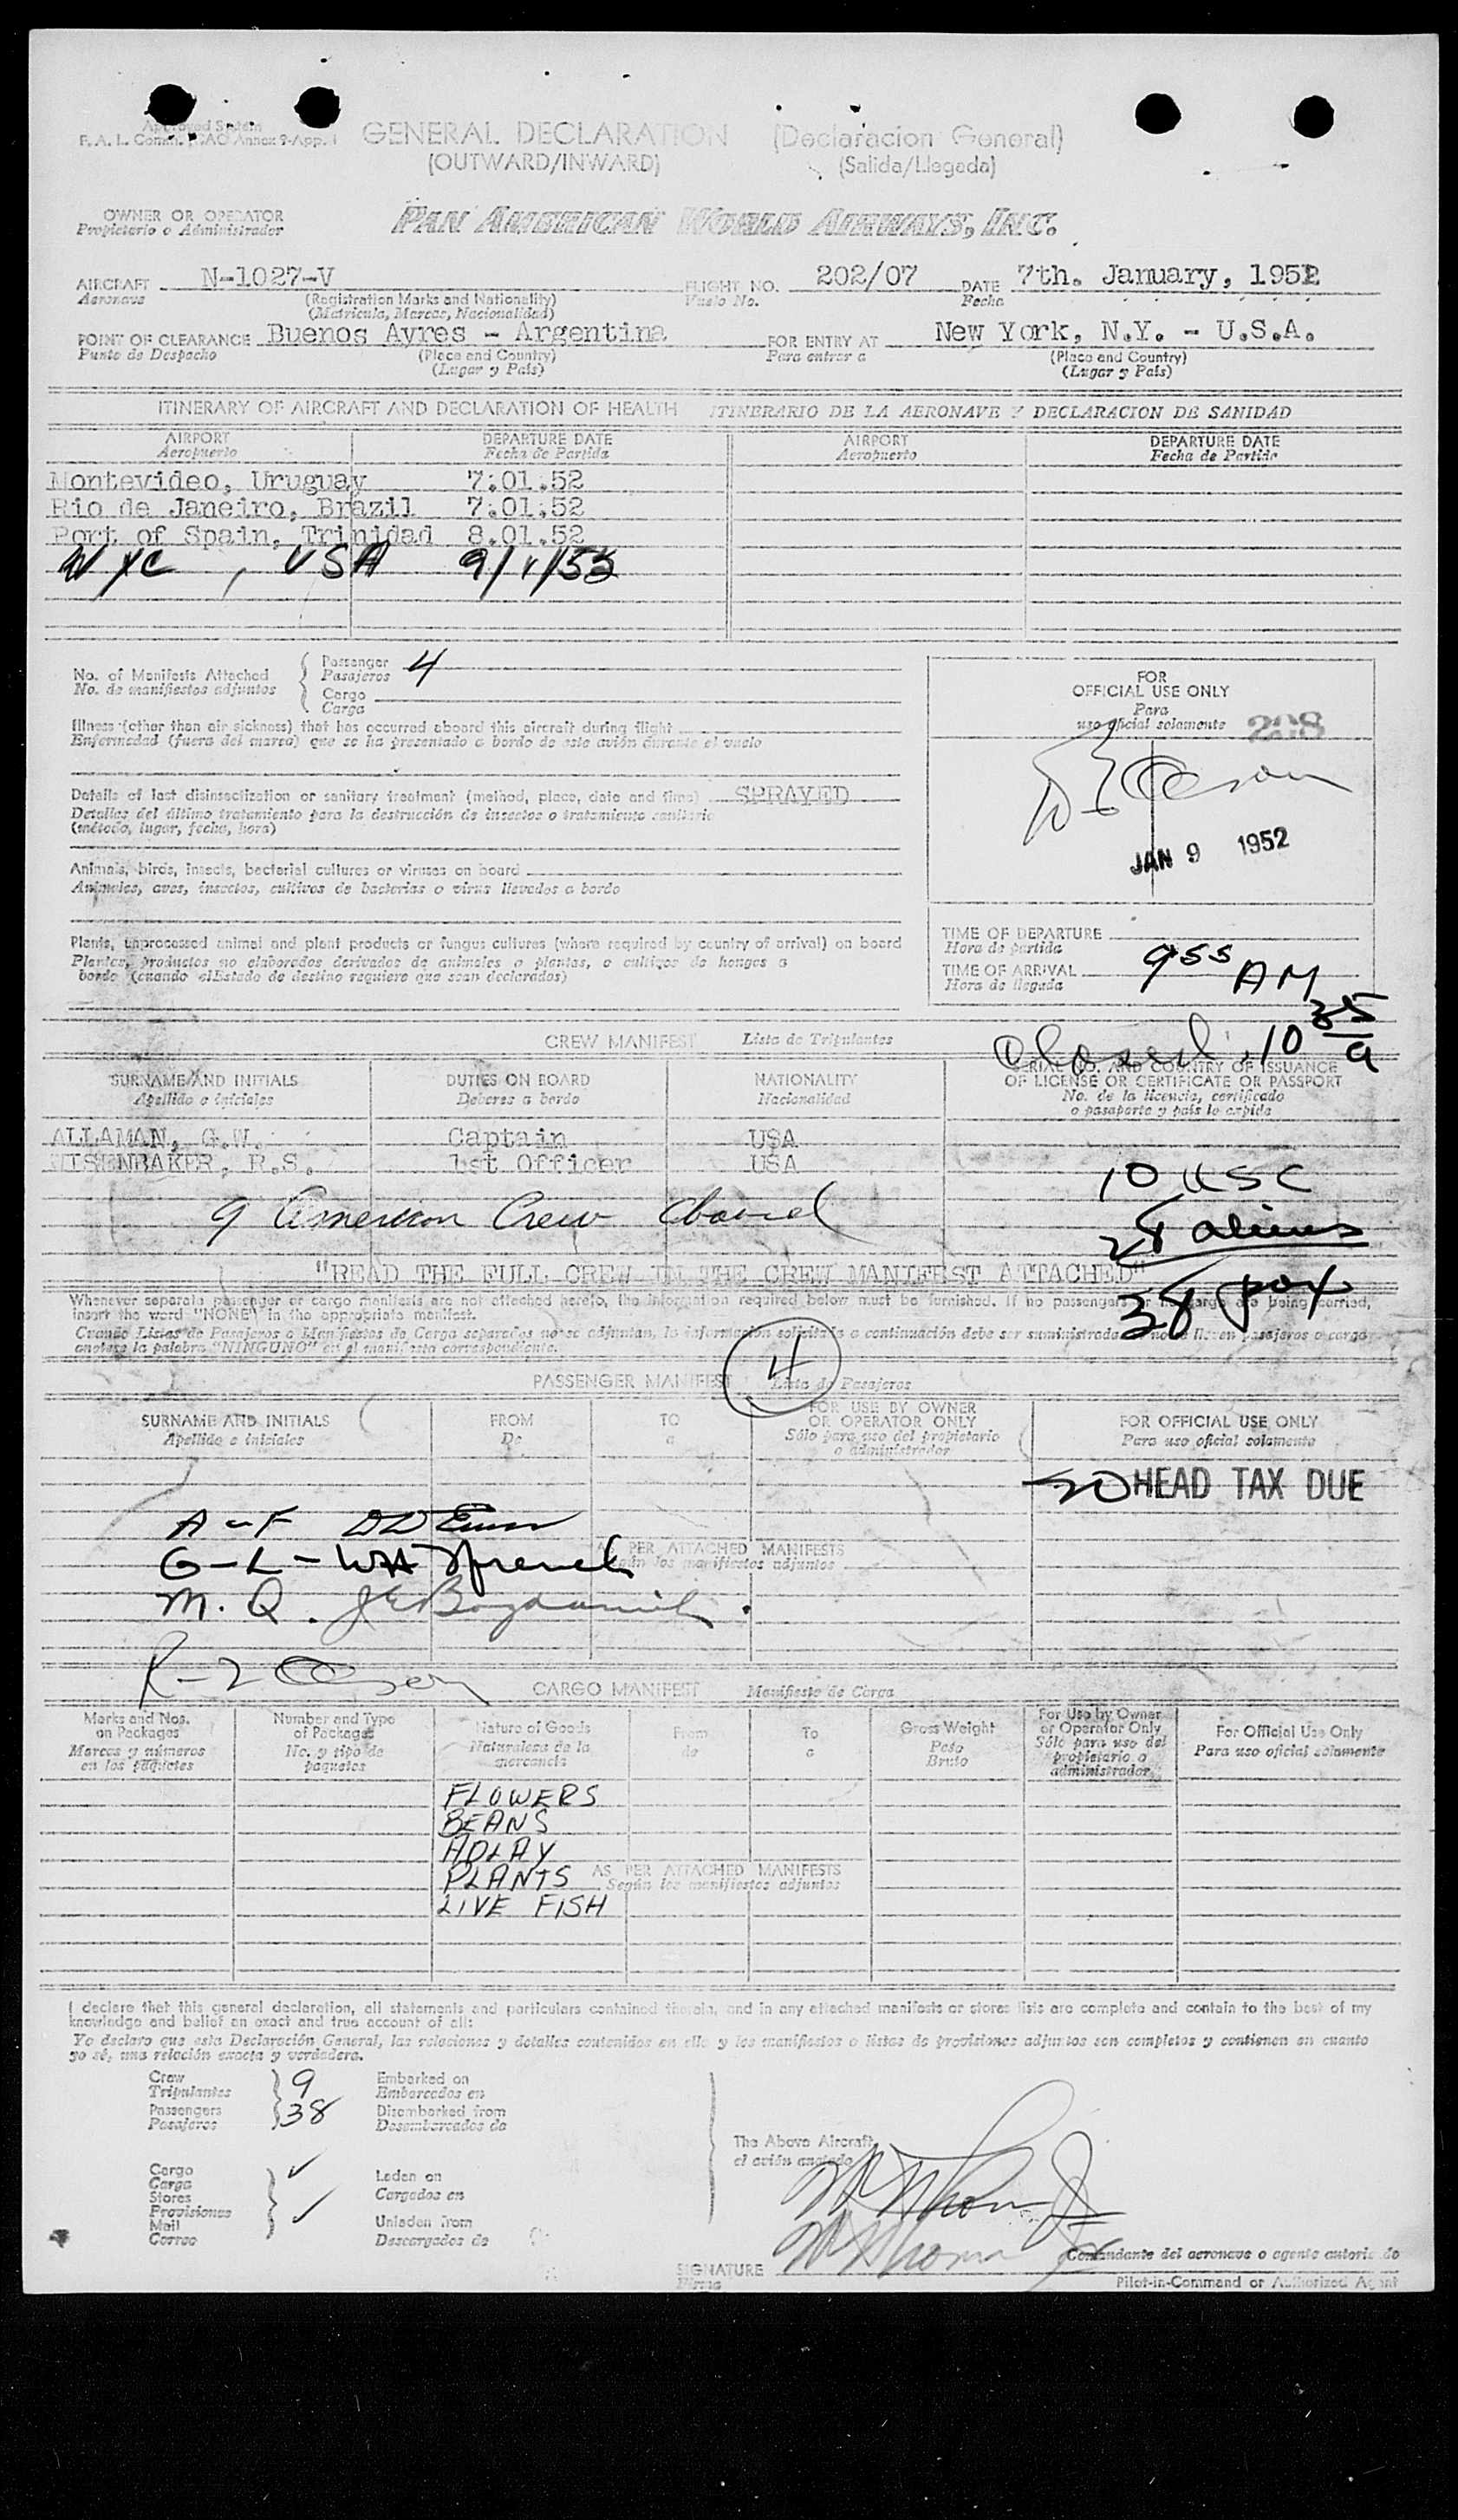 Approved System
F. A. L. Conan. ICAO Annex 9-App. 1
GENERAL DECLARATION (Declaracion General)
(OUTWARD/INWARD) (Salida/Llegada)
OWNER OR OPERATOR
Propietario o Administrador
PAN AMERICAN WORLD AIRWAYS, INC.
AIRCRAFT N-1027-V FLIGHT NO. 202/07 DATE 7th. January, 1952
Aeronave (Registration Marks and Nationality) Vuelo No. Fecha
(Matricula, Marcas, Nacionalidad)
POINT OF CLEARANCE Buenos Ayres - Argentina FOR ENTRY AT New York, N.Y. - U.S.A.
Punto de Despacho (Place and Country) Para entrar a (Place and Country)
(Lugar y País) (Lugar y País)
ITINERARY OF AIRCRAFT AND DECLARATION OF HEALTH ITINERARIO DE LA AERONAVE Y DECLARACION DE SANIDAD
AIRPORT DEPARTURE DATE AIRPORT DEPARTURE DATE
Aeropuerto Fecha de Partida Aeropuerto Fecha de Partida
Montevideo, Uruguay 7.01.52
Rio de Janeiro, Brazil 7.01.52
Port of Spain, Trinidad 8.01.52
NYC, USA 9/1/53
No. of Manifests Attached Passenger 4
No. de manifiestos adjuntos Pasajeros
Cargo
Carga
FOR
OFFICIAL USE ONLY
Para
uso oficial solamente 208
Illness (other than air sickness) that has occurred aboard this aircraft during flight
Enfermedad (fuera del mareo) que se ha presentado a bordo de este avión durante el vuelo
Details of last disinsectization or sanitary treatment (method, place, date and time) SPRAYED
Detalles del último tratamiento para la destrucción de insectos o tratamiento sanitario
(método, lugar, fecha, hora)
JAN 9 1952
Animals, birds, insects, bacterial cultures or viruses on board
Animales, aves, insectos, cultivos de bacterias o virus llevados a bordo
Plants, unprocessed animal and plant products or fungus cultures (where required by country of arrival) on board
Plantas, productos no elaborados derivados de animales o plantas, o cultivos de hongos a
bordo (cuando el Estado de destino requiere que sean declarados)
TIME OF DEPARTURE
Hora de partida
TIME OF ARRIVAL 9 55 AM
Hora de llegada
Closed 10 35 a
CREW MANIFEST Lista de Tripulantes
SURNAME AND INITIALS DUTIES ON BOARD NATIONALITY SERIAL NO. AND COUNTRY OF ISSUANCE
Apellido e iniciales Deberes a bordo Nacionalidad OF LICENSE OR CERTIFICATE OR PASSPORT
No. de la licencia, certificado
o pasaporte y país lo expida
ALLAMAN, G.W. Captain USA
WISENBAKER, R.S. 1st Officer USA
10 USC
9 American Crew aboard
28 aliens
38 pax
"READ THE FULL CREW IN THE CREW MANIFEST ATTACHED"
Whenever separate passenger or cargo manifests are not attached hereto, the information required below must be furnished. If no passengers or no cargo are being carried,
insert the word "NONE" in the appropriate manifest.
Cuando Listas de Pasajeros o Manifiestos de Carga separados no se adjuntan, la información solicitada a continuación debe ser suministrada. Si no se llevan pasajeros o carga
anotese la palabra "NINGUNO" en el manifiesto correspondiente.
4
PASSENGER MANIFEST Lista de Pasajeros
SURNAME AND INITIALS FROM TO FOR USE BY OWNER FOR OFFICIAL USE ONLY
Apellido e iniciales De a OR OPERATOR ONLY Para uso oficial solamente
Sólo para uso del propietario
o administrador
HEAD TAX DUE
A-F
AS PER ATTACHED MANIFESTS
Según los manifiestos adjuntos
G-L
M.Q.
R-Z
CARGO MANIFEST Manifiesto de Carga
Marks and Nos. on Packages Number and Type of Packages Nature of Goods From To Gross Weight For Use by Owner or Operator Only For Official Use Only
Marcas y números en los paquetes No. y tipo de paquetes Naturaleza de la mercancía de a Peso Bruto Sólo para uso del propietario o administrador Para uso oficial solamente
FLOWERS
BEANS
ADLAY
PLANTS AS PER ATTACHED MANIFESTS
Según los manifiestos adjuntos
LIVE FISH
I declare that this general declaration, all statements and particulars contained therein, and in any attached manifests or stores lists are complete and contain to the best of my
knowledge and belief an exact and true account of all:
Yo declaro que esta Declaración General, las relaciones y detalles contenidos en ella y los manifiestos o listas de provisiones adjuntos son completos y contienen en cuanto
yo sé, una relación exacta y verdadera.
Crew 9 Embarked on
Tripulantes Embarcados en
Passengers 38 Disembarked from
Pasajeros Desembarcados de
The Above Aircraft
el avión anotado
Cargo Laden on
Carga Cargados en
Stores
Provisiones
Mail Unladen from
Correo Descargados de
SIGNATURE
Firma
Comandante del aeronave o agente autorizado
Pilot-in-Command or Authorized Agent